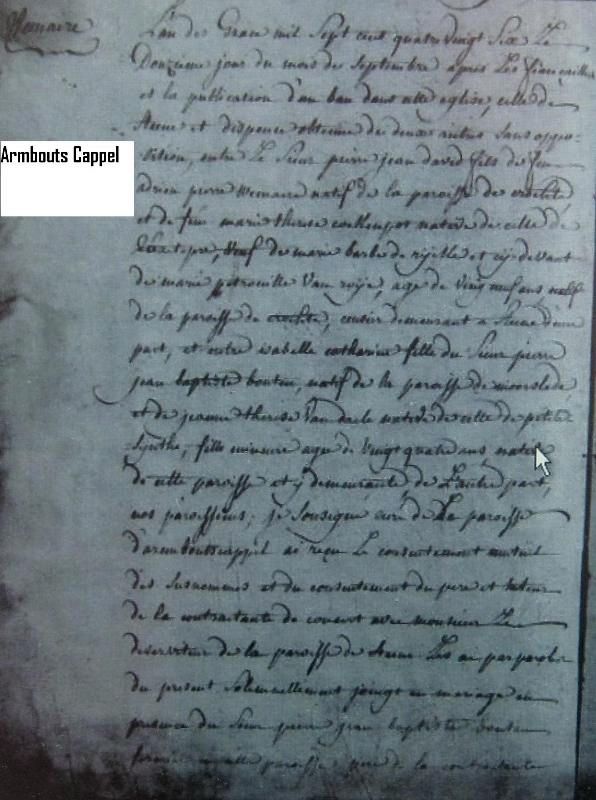 Wemaire
L'an de Grace mil Sept cent quatre vingt Six Le
Douzieme jour du mois de Septembre après Les fiançailles
et la publication d'un ban dans cette eglise, celle de
Steene et dispence obtenue des deux autres sans oppo-
Armbouts Cappel
sition, entre Le Sieur pierre jean david fils de feu
adrien pierre wemaire natif de la paroisse de crochte
et de feue marie therese native de celle de
veuf de marie barbe de rycke et cy devant
de marie petronille Van age de Vingt neuf ans natif
de la paroisse de crochte, censier demeurant a Steene d'une
part, et entre isabelle catharine fille du Sieur pierre
jean baptiste bouton, natif de la paroisse de moorslede
et de jeanne therese Van daele native de celle de petite
Synthe, fille mineure agee de Vingt quatre ans native
de cette paroisse et y demeurante de L'autre part,
nos paroissiens; je Soussigné curé de La paroisse
d'armboutscappel ai reçu Le consentement mutuel
des Susnommés et du consentement du pere et tuteur
de la contractante de concert avec monsieur Le
deserviteur de la paroisse de Steene Les ai par paroles
du present Solemnellement joingt en mariage en
presence du Sieur pierre jean baptiste bouton
fermier en cette paroisse pere de la contractante